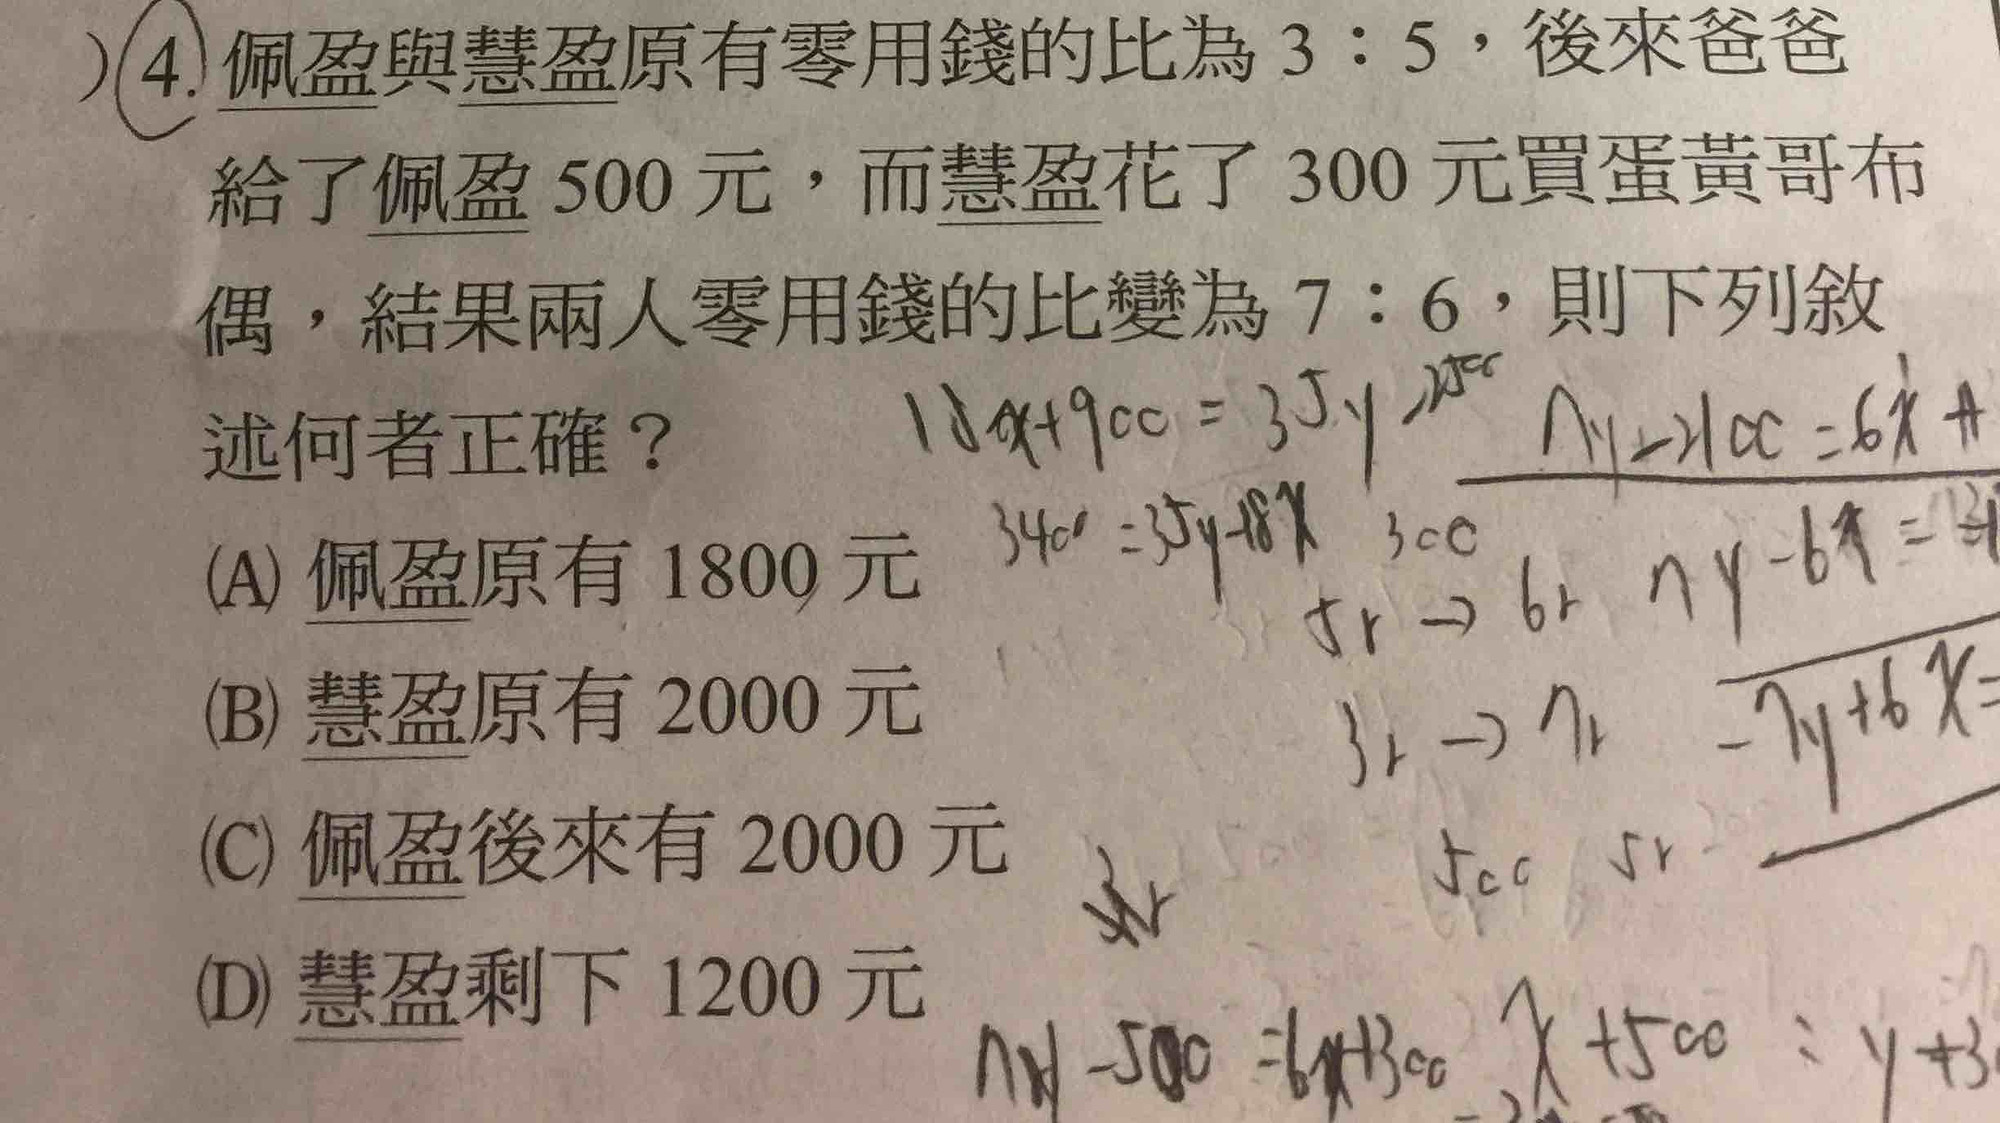 )4. 佩盈與慧盈原有零用錢的比為 3：5，後來爸爸
給了佩盈 500 元，而慧盈花了 300 元買蛋黃哥布
偶，結果兩人零用錢的比變為 7：6，則下列敘
述何者正確？
18x+900 = 35y-2500
7y-2100 = 6x +
(A) 佩盈原有 1800 元
3400 = 35y-18x
300
7y-6x =
5r → 6r
(B) 慧盈原有 2000 元
3r → 7r
-7y+6x=
(C) 佩盈後來有 2000 元
500 5r
(D) 慧盈剩下 1200 元
-500 =6x+300
x+500 : y+3